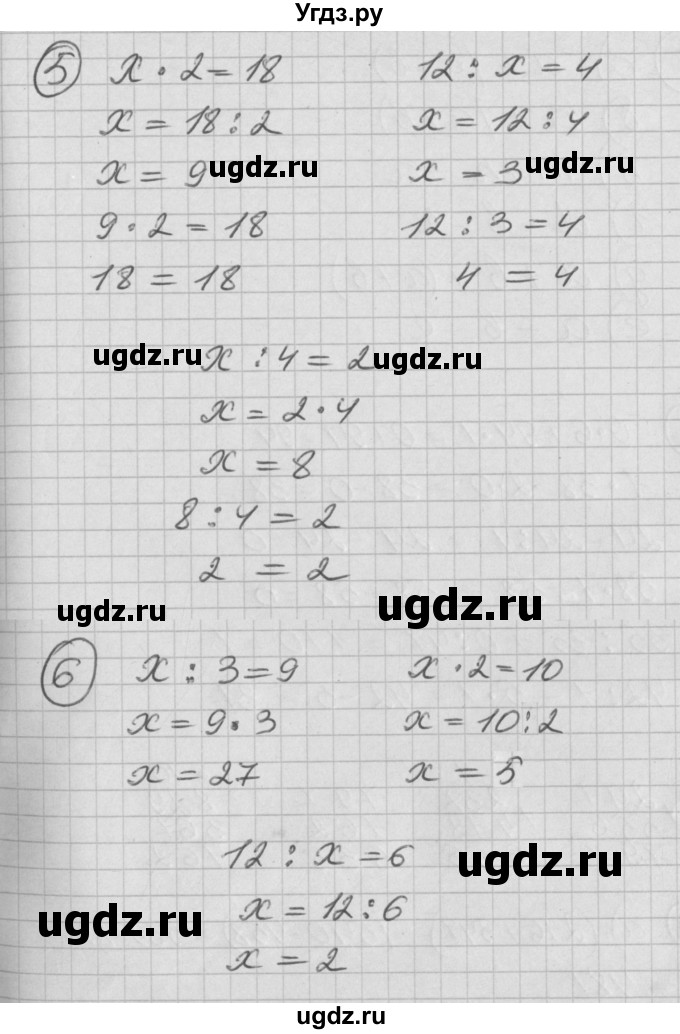 Угдз.ру
5 x · 2 = 18 12 : x = 4
x = 18 : 2 x = 12 : 4
x = 9 ugdz.ru x = 3 ugdz.ru
9 · 2 = 18 12 : 3 = 4
18 = 18 4 = 4
ugdz.ru x : 4 = 2 ugdz.ru
x = 2 · 4
x = 8
8 : 4 = 2
2 = 2
ugdz.ru ugdz.ru
6 x : 3 = 9 x · 2 = 10
x = 9 · 3 x = 10 : 2
x = 27 x = 5
12 : x = 6 ugdz.ru
ugdz.ru x = 12 : 6
x = 2
ugdz.ru